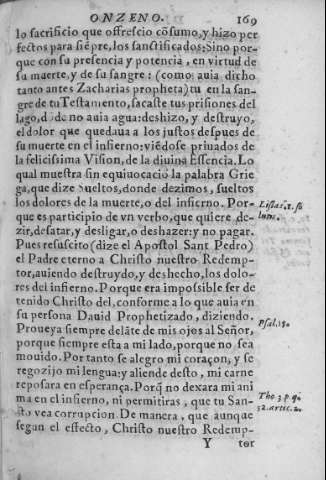 ONZENO. 169
lo sacrificio que offrescio cõsumo, y hizo per
fectos para siẽpre, los sanctificados: Sino por-
que con su presencia y potencia, en virtud de
su muerte, y de su sangre: (como auia dicho
tanto antes Zacharias propheta) tu en la san-
gre de tu Testamento, sacaste tus prisiones del
lago, dõde no auia agua: deshizo, y destruyo,
el dolor que quedaua a los justos despues de
su muerte en el infierno: viẽdose priuados de
la felicissima Vision, de la diuina Essencia. Lo
qual muestra sin equiuocaciõ la palabra Grie
ga, que dize Sueltos, donde dezimos, sueltos
los dolores de la muerte, o del infierno. Por-
que es participio de vn verbo, que quiere de-
zir, desatar, y desligar, o deshazer: y no pagar.
Pues resuscito (dize el Apostol Sant Pedro)
el Padre eterno a Christo nuestro Redemp-
tor, auiendo destruydo, y deshecho, los dolo-
res del infierno. Porque era impossible ser de
tenido Christo del, conforme a lo que auia en
su persona Dauid Prophetizado, diziendo.
Proueya siempre delãte de mis ojos al Señor,
porque siempre esta a mi lado, porque no sea
mouido. Por tanto se alegro mi coraçon, y se
regozijo mi lengua: y aliende desto, mi carne
reposara en esperança. Porq̃ no dexara mi ani
ma en el infierno, ni permitiras, que tu San-
sto vea corrupcion. De manera, que aunque
segun el effecto, Christo nuestro Redemp-
Y tor
Psal. 15.
Tho. 3. p. q.
52. artic. 2.